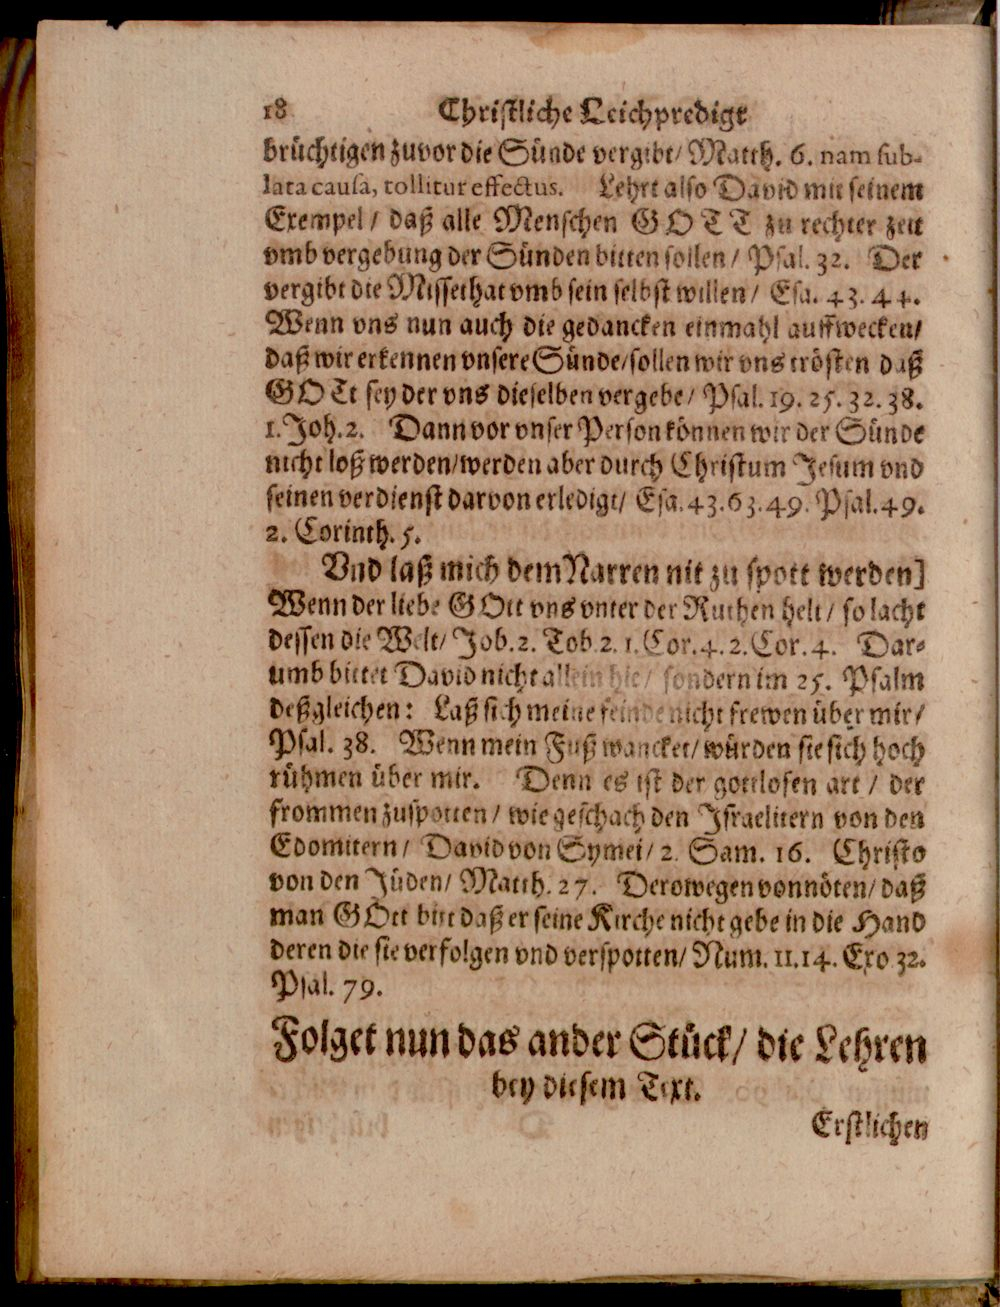 18 Christliche Leichpredigt
brüchtigen zuvor die Sünde vergibt/ Matth. 6. nam sub-
lata causa, tollitur effectus. Lehrt also David mit seinem
Exempel / daß alle Menschen GOTT zu rechter zeit
vmb vergebung der Sünden bitten sollen / Psal. 32. Der
vergibt die Missethat vmb sein selbst willen / Esa. 43. 44.
Wenn vns nun auch die gedancken einmahl auffwecken/
daß wir erkennen vnsere Sünde/sollen wir vns trösten daß
GOTt sey der vns dieselben vergebe / Psal. 19. 25. 32. 38.
1. Joh. 2. Dann vor vnser Person können wir der Sünde
nicht loß werden/werden aber durch Christum Jesum vnd
seinen verdienst darvon erledigt/ Esa. 43. 63. 49. Psal. 49.
2. Corinth. 5.
Vnd laß mich dem Narren nit zu spott werden]
Wenn der liebe GOtt vns vnter der Ruthen helt / so lacht
dessen die Welt/ Job. 2. Tob. 2. 1. Cor. 4. 2. Cor. 4. Dar-
umb bittet David nicht allein hie / sondern im 25. Psalm
deßgleichen: Laß sich meine feinde nicht frewen über mir/
Psal. 38. Wenn mein Fuß wancket/ würden sie sich hoch
rühmen über mir. Denn es ist der gottlosen art / der
frommen zuspotten / wie geschach den Israelitern von den
Edomitern / David von Symei / 2. Sam. 16. Christo
von den Jüden/ Matth. 27. Derowegen vonnöten/ daß
man GOtt bitt daß er seine Kirche nicht gebe in die Hand
deren die sie verfolgen vnd verspotten/ Num. 11. 14. Exo. 32.
Psal. 79.
Folget nun das ander Stück/ die Lehren
bey diesem Text.
Erstlichen